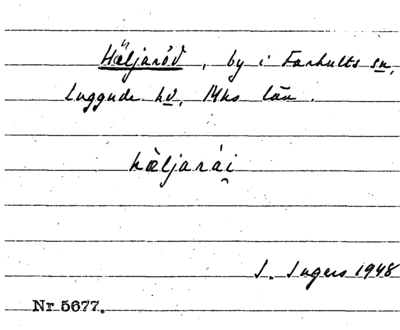 Häljaröd, by i Farhults sn,
Luggude hd, Mhs län.
häljarái
I. Ingers 1948
Nr 5677.